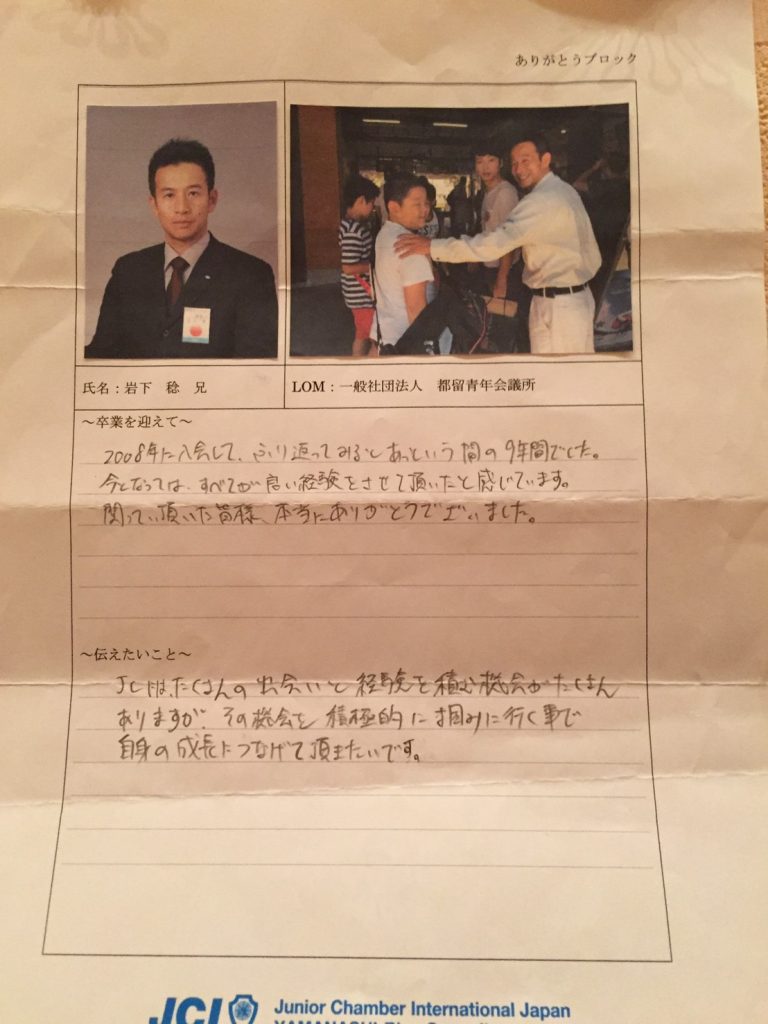 ありがとうブロック
氏名：岩下　稔　兄
LOM：一般社団法人　都留青年会議所
～卒業を迎えて～
2008年に入会して、ふり返ってみるとあっという間の9年間でした。
今となっては、すべてが良い経験をさせて頂いたと感じています。
関って頂いた皆様、本当にありがとうございました。
～伝えたいこと～
JCには、たくさんの出会いと経験を積む機会がたくさん
ありますが、その機会を積極的に掴みに行く事で
自身の成長につなげて頂きたいです。
JCI
Junior Chamber International Japan
YAMANASHI